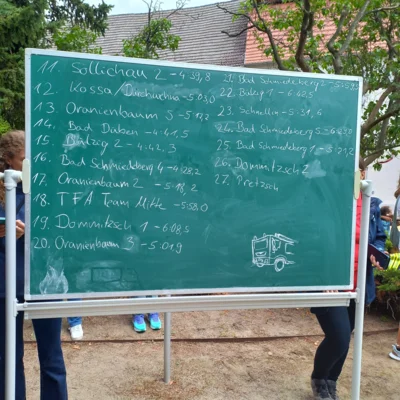 11. Söllichau 2 - 4:39,8
12. Kossa/Durchwehna - 5:03,0
13. Oranienbaum
14. Bad Düben - 4:41,5
15. 2 - 4:42,3
16. Bad Schmiedeberg 4 - 4:28,2
17. Oranienbaum 2 - 5:18,2
18. TFA Team Mitte - 5:58,0
19. Dommitzsch 1 - 6:08,5
20. Oranienbaum 3 - 5:01,9
21. Bad Schmiedeberg
22. 1 - 6:48,5
23. Schnellin - 5:31,6
24. Bad Schmiedeberg 5
25. Bad Schmiedeberg 1
26. Dommitzsch 2
27. Pretzsch